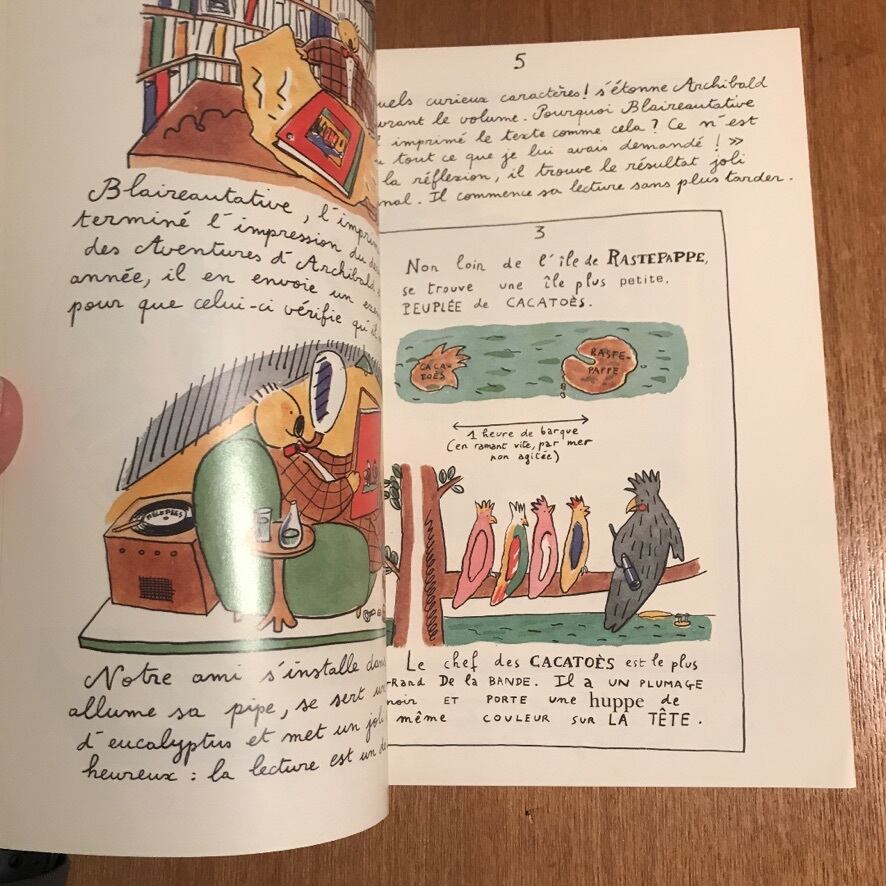 Blaireautative, l'imprim
terminé l'impression du
des Aventures d'Archibald
année, il en envoie un
pour que celui-ci vérifie qu'il
MÉLOPÉES
Notre ami s'installe dans
allume sa pipe, se sert un
d'eucalyptus et met un joli
heureux : la lecture est un
5
uels curieux caractères! s'étonne Archibald
vrant le volume. Pourquoi Blaireautative
imprimé le texte comme cela ? Ce n'est
tout ce que je lui avais demandé ! »
la réflexion, il trouve le résultat joli
nal. Il commence sa lecture sans plus tarder.
3
Non loin de l'île de RASTEPAPPE,
se trouve une île plus petite,
PEUPLÉE de CACATOÈS.
CACA-
TOÈS
RASTE-
PAPPE
1 heure de barque
(en ramant vite, par mer
non agitée)
Le chef des CACATOÈS est le plus
RAND De la BANDE. Il a UN PLUMAGE
noir ET PORTE une huppe de
même COULEUR SUR LA TÊTE.